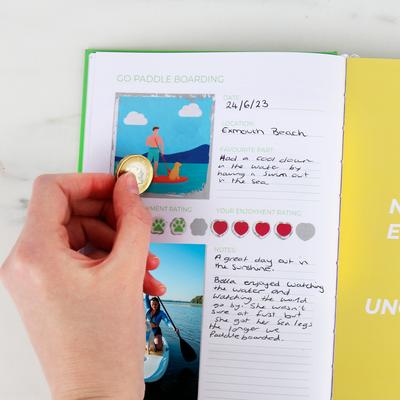 GO PADDLE BOARDING
DATE:
24/6/23
LOCATION:
Exmouth Beach
FAVOURITE PART:
Had a cool down
in the water by
having a swim out
in the sea
YMENT RATING
YOUR ENJOYMENT RATING:
NOTES:
A great day out in
the sunshine.
Bella enjoyed watching
the water and
watching the world
go by. She wasn't
sure at first but
she got her sea legs
the longer we
Paddleboarded.
N
E
UN